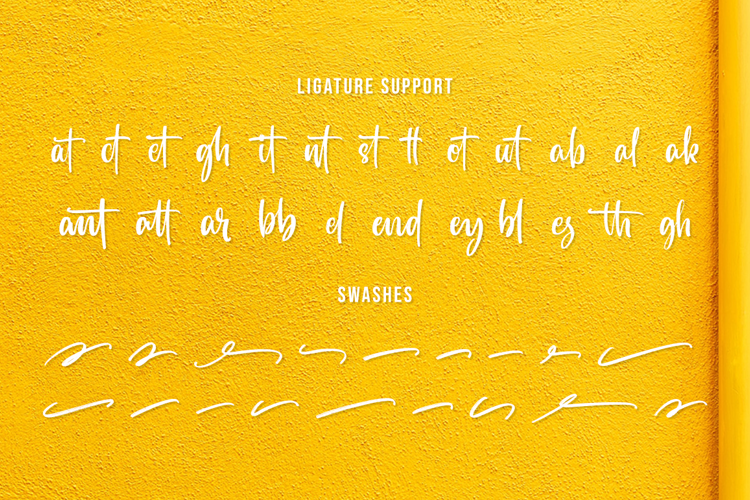 LIGATURE SUPPORT
at ct et gh it nt st tt ot ut ab al ak
ant att ar bb el end ey bl es th gh
SWASHES